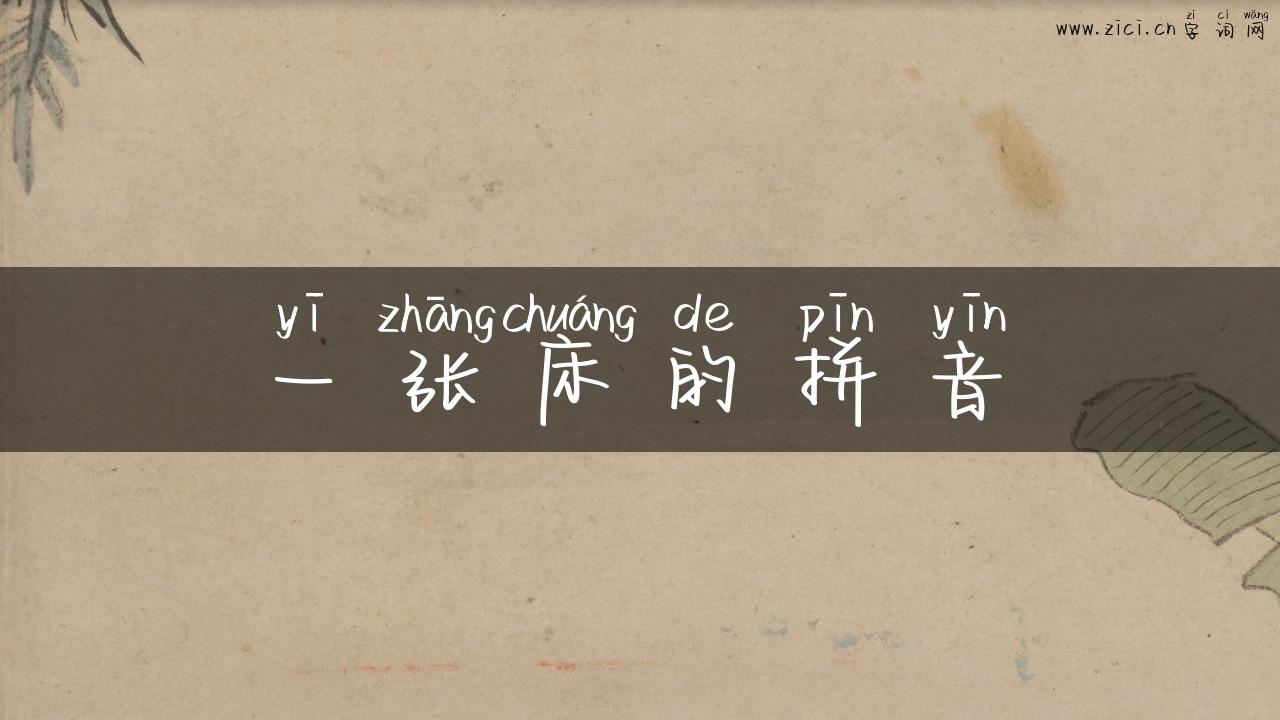 zì cí wǎng
www.zici.cn 字词网
yī zhāng chuáng de pīn yīn
一张床的拼音